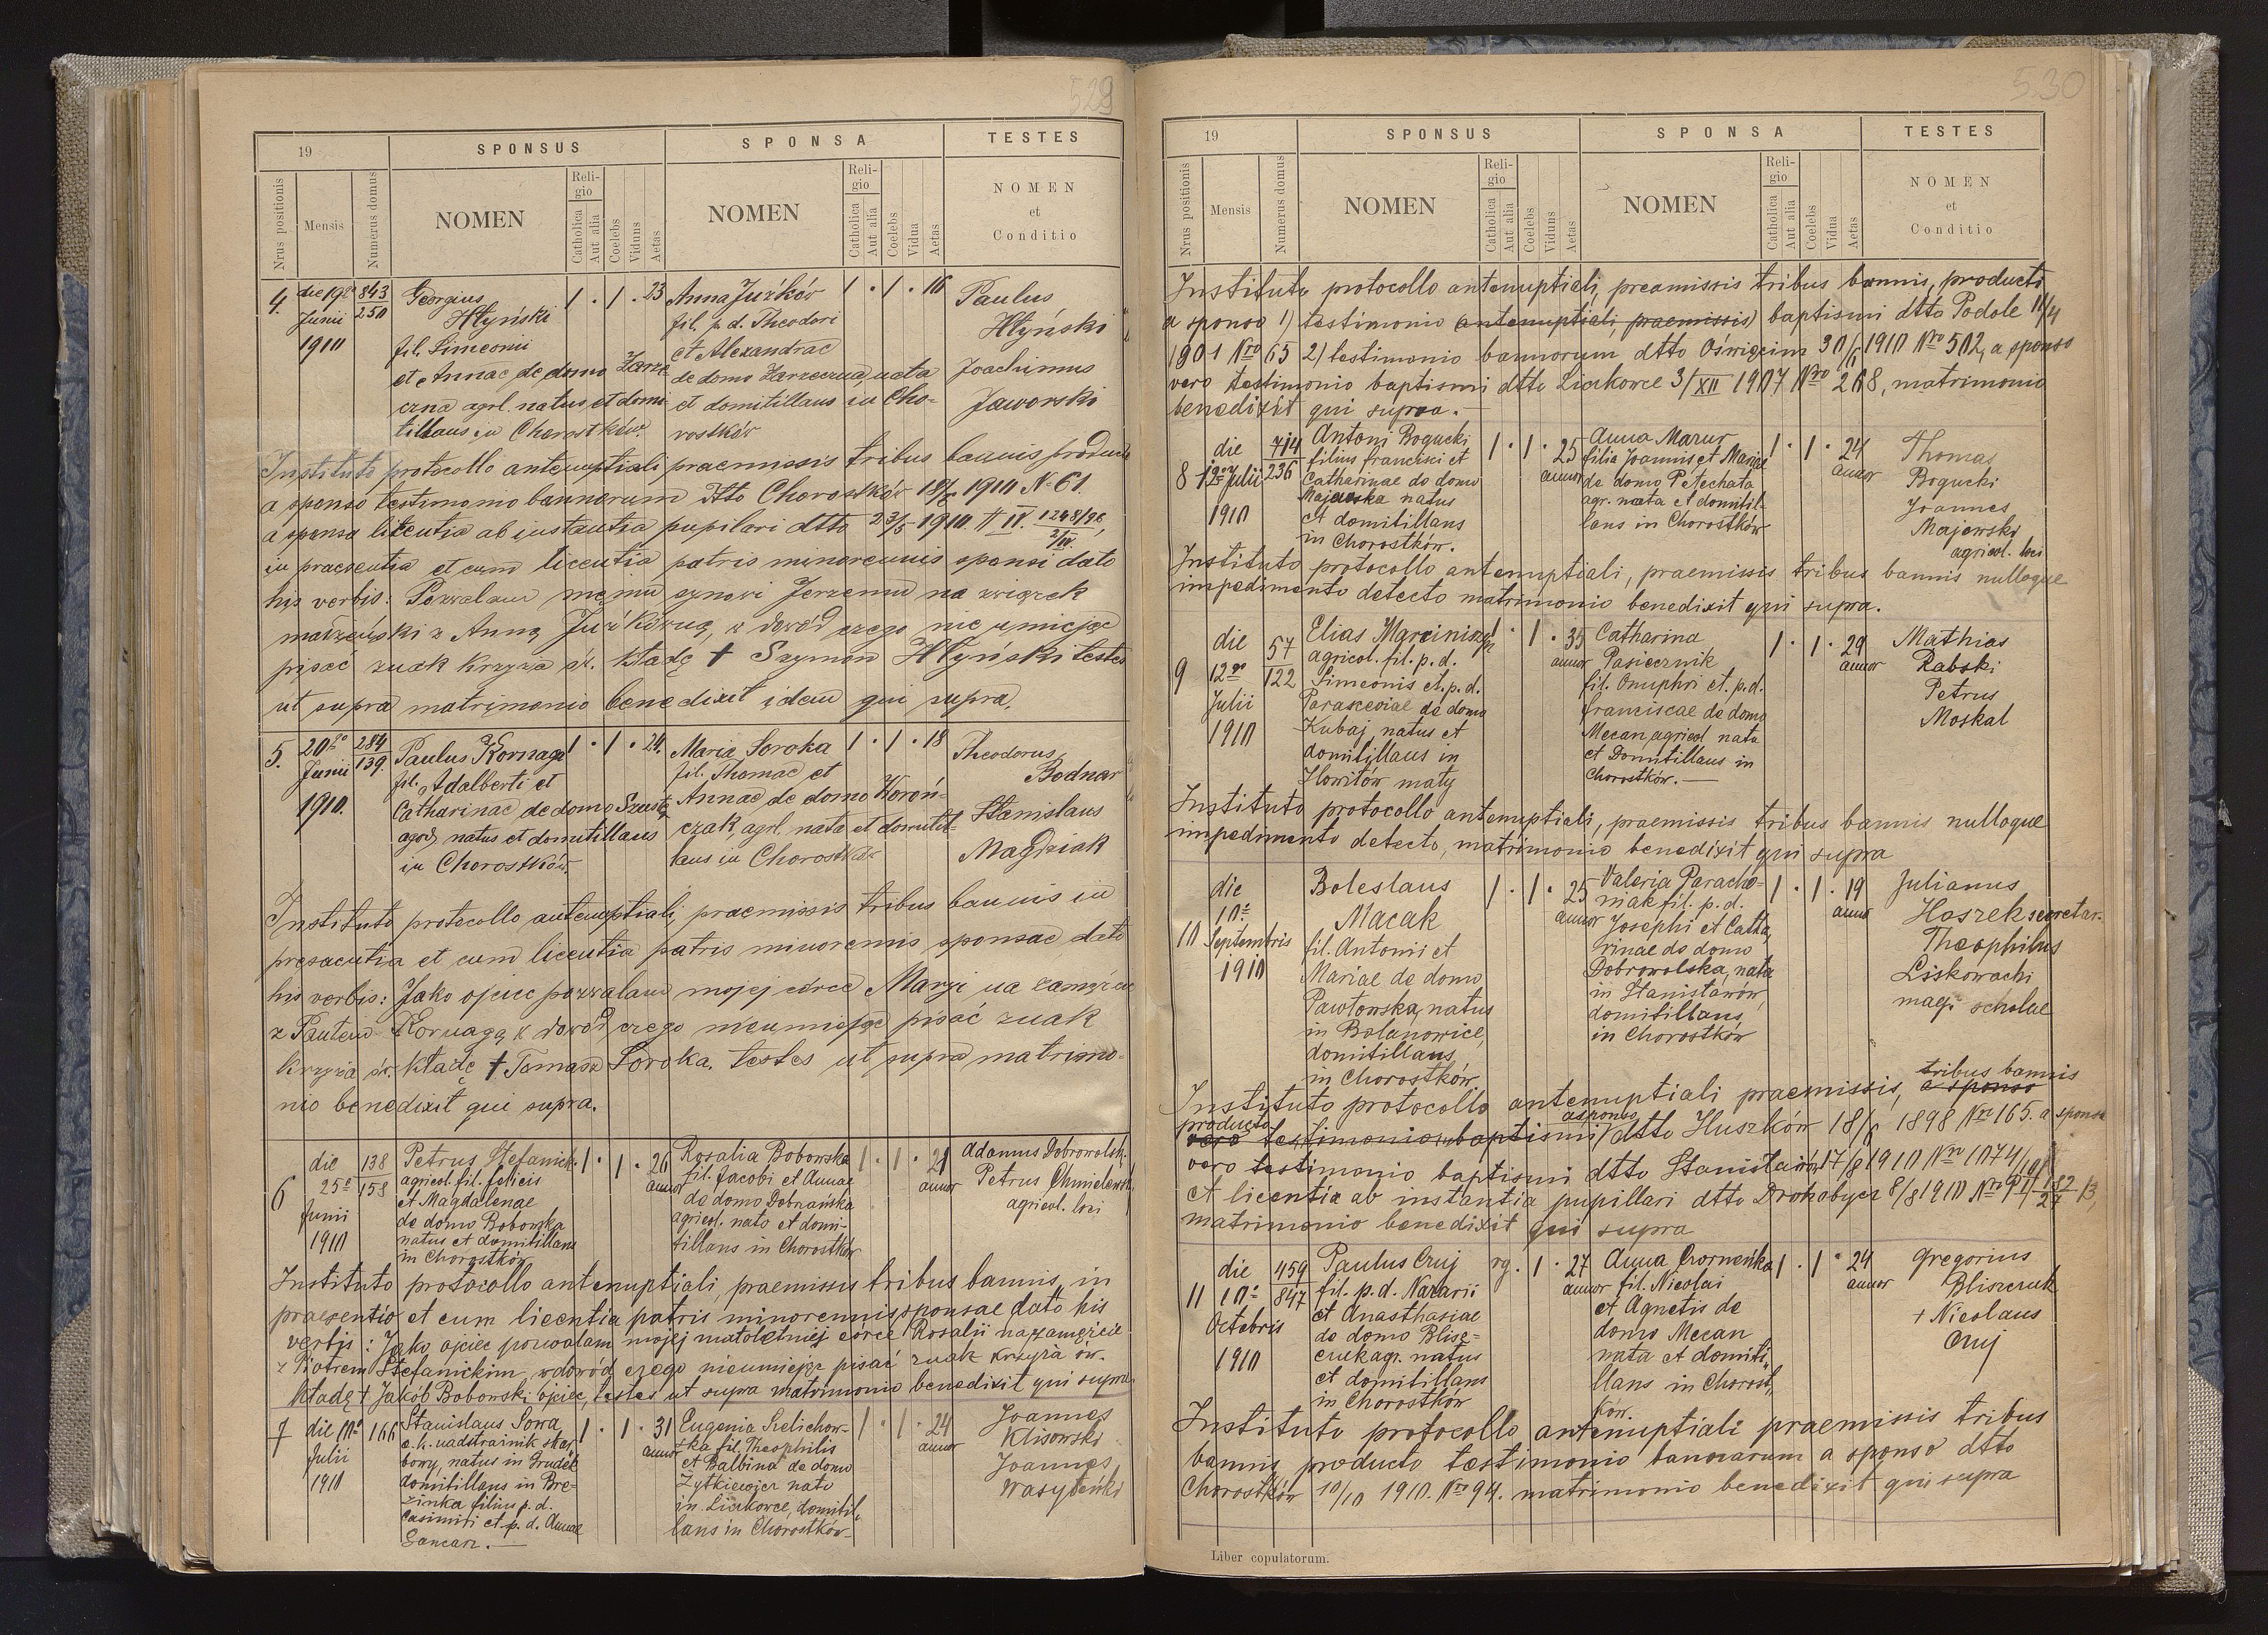 529
19
SPONSUS
SPONSA
TESTES
Nrus positionis
Mensis
Numerus domus
NOMEN
Religio
Catholica
Aut alia
Coelebs
Viduus
Aetas
NOMEN
Religio
Catholica
Aut alia
Coelebs
Vidua
Aetas
NOMEN
et
Conditio
4.
die 19
Junii
1910
843
250
Georgius
Hłyński
fil. Simeonis
et Annae de domo Zarze-
czna agrl. natus et domi-
tillans in Chorostków.
1 . 1 . 23
Anna Juźków
fil. p. d. Theodori
et Alexandrae
de domo Zarzeczna, nata
et domitillans in Cho-
rostków
1 . 1 . 16
Paulus
Hłyński
Joachimus
Jaworski
Instituto protocollo antenuptiali praemissis tribus bannis producto
a sponso testimonio bannorum dtto Chorostków 18/6 1910 N. 61.
a sponsa licentia ab instantia pupilari dtto 23/5 1910
in praesentia et cum licentia patris minorennis sponsi dato
his verbis: Pozwalam mojmu synowi Jerzemu na związek
małżeński z Anną Juźkówną, w dowód czego nie umiejąc
pisać znak krzyża św. kładę + Szymon Hłyński testes
ut supra matrimonio benedixit idem qui supra.
5.
20
Junii
1910.
284
139.
Paulus Kornaga
fil. Adalberti et
Catharinae de domo Szusta
agr. natus et domitillans
in Chorostków.
1 . 1 . 24.
Maria Soroka
fil. Thomae et
Annae de domo Woroń-
czak, agrl. nata et domitil-
lans in Chorostków
1 . 1 . 18
Theodorus
Bodnar
Stanislaus
Magdziak
Instituto protocollo antenuptiali, praemissis tribus bannis in
presaentia et cum licentia patris minorennis sponsae dato
his verbis: Jako ojciec pozwalam mojej córce Marji na zamęście
z Pawłem Kornagą w dowód czego nieumiejąc pisać znak
krzyża św. kładę + Tomasz Soroka. testes ut supra matrimo-
nio benedixit qui supra.
6
die
25
Junii
1910
138
158
Petrus Stefanick.
agricol. fil. felicis
et Magdalenae
de domo Bobowska
natus et domitillans
in Chorostków
1 . 1 . 26
annor
Rosalia Bobowska
fil. Jacobi et Annae
de domo Dobrańska
agricol. nata et domi-
tillans in Chorostków
1 . 1 . 21
annor
Adamus Dobrowolsk.
Petrus Chmielewsk.
agricol. loci
Instituto protocollo antenuptiali, praemissis tribus bannis, in
praesentia et cum licentia patris minorennis sponsae dato his
verbis: Jako ojciec pozwalam mojej małoletniej córce Rosalii na zamęście
z Piotrem Stefanickim, w dowód czego nieumiejąc pisać znak krzyża św.
kładę + Jakób Bobowski ojciec, testes ut supra matrimonio benedixit qui supra.
7
die
Julii
1910
166
Stanislaus Sowa
c. k. nadstrażnik skar-
bowy, natus in Grudek
domitillans in Brze-
zinka filius p. d.
Casimiri et p. d. Annae
1 . 1 . 31
annor
Eugenia Sielichow-
ska fil. Theophilis
et Balbina de domo
Żytkiewicz nata
in Liczkowce, domitil-
lans in Chorostków
1 . 1 . 24
annor
Joannes
Klisowski
Joannes
Wasyleński
530
19
SPONSUS
SPONSA
TESTES
Nrus positionis
Mensis
Numerus domus
NOMEN
Religio
Catholica
Aut alia
Coelebs
Viduus
Aetas
NOMEN
Religio
Catholica
Aut alia
Coelebs
Vidua
Aetas
NOMEN
et
Conditio
Instituto protocollo antenuptiali, preamissis tribus bannis, producti
a sponso 1) testimonio antenuptiali, praemissis) baptismi dtto Podole 11/4
1901 Nro 65 2) testimonio bannorum dtto Oświęcim 30/6 1910 Nro 502, a sponso
vero testimonio baptismi dtto Liczkowce 3/XII 1907 Nro 268, matrimonio
benedixit qui supra.
8
die
12 Julii
1910
714
236
Antoni Bogucki
filius francisci et
Catharinae de domo
Majewska natus
et domitillans
in Chorostków.
1 . 1 . 25
annor
Anna Mazur
filia Joannis et Mariae
de domo Petechata
agr. nata et domitil-
lans in Chorostków
1 . 1 . 24
annor
Thomas
Bogucki
Joannes
Majewski
agricol. loci
Instituto protocollo antenuptiali, praemissis tribus bannis nulloque
impedimento detecto matrimonio benedixit qui supra.
9
die
12
Julii
1910
57
122
Elias Marciniszyn
agricol. fil. p. d.
Simeonis et. p. d.
Parasceviae de domo
Kubaj, natus et
domitillans in
Howiłów mały
1 . 1 . 35
annor
Catharina
Pasiecznik
fil. Onuphri et. p. d.
franciscae de domo
Mecan, agricol nata
et Domitillans in
Chorostków.
1 . 1 . 29
annor
Mathias
Rabski
Petrus
Moskal
Instituto protocollo antenuptiali, praemissis tribus bannis nulloque
impedimento detecto, matrimonio benedixit qui supra
10
die
10
Septembris
1910
Boleslaus
Macak
fil. Antonii et
Mariae de domo
Pawłowska, natus
in Bolanowice,
domitillans
in Chorostków
1 . 1 . 25
annor
Valeria Paracho-
niak fil. p. d.
Josephi et Catha-
rinae de domo
Dobrowolska, nata
in Stanisławów,
domitillans
in Chorostków
1 . 1 . 19
annor
Julianus
Haszek secretar.
Theophilus
Liskowacki
mag. scholae
Instituto protocollo antenuptiali praemissis, tribus bannis
a sponso
producto a sponso
vero testimonio baptismi dtto Huszków 18/6 1898 Nro 165. a sponsa
vero testimonio baptismi dtto Stanisławów 17/8 1910 Nro 1074/10
et licentia ab instantia pupillari dtto Drohobycz 8/8 1910 Nro
matrimonio benedixit qui supra
11
die
10
Octobris
1910
459
847
Paulus Cruj
fil. p. d. Nazarii
et Anasthasiae
de domo Blisz-
czuk agr. natus
et domitillans
in Chorostków
rg. 1 . 27
annor
Anna Czorneńka
fil. Nicolai
et Agnetis de
domo Mecan
nata et domiti-
llans in Chorost-
ków.
1 . 1 . 24
annor
Gregorius
Bliszczuk
+ Nicolaus
Cruj
Instituto protocollo antenuptiali praemissis tribus
bannis, producto testimonio bannorum a sponso dtto
Chorostków 10/10 1910. Nro 94. matrimonio benedixit qui supra
Liber copulatorum.